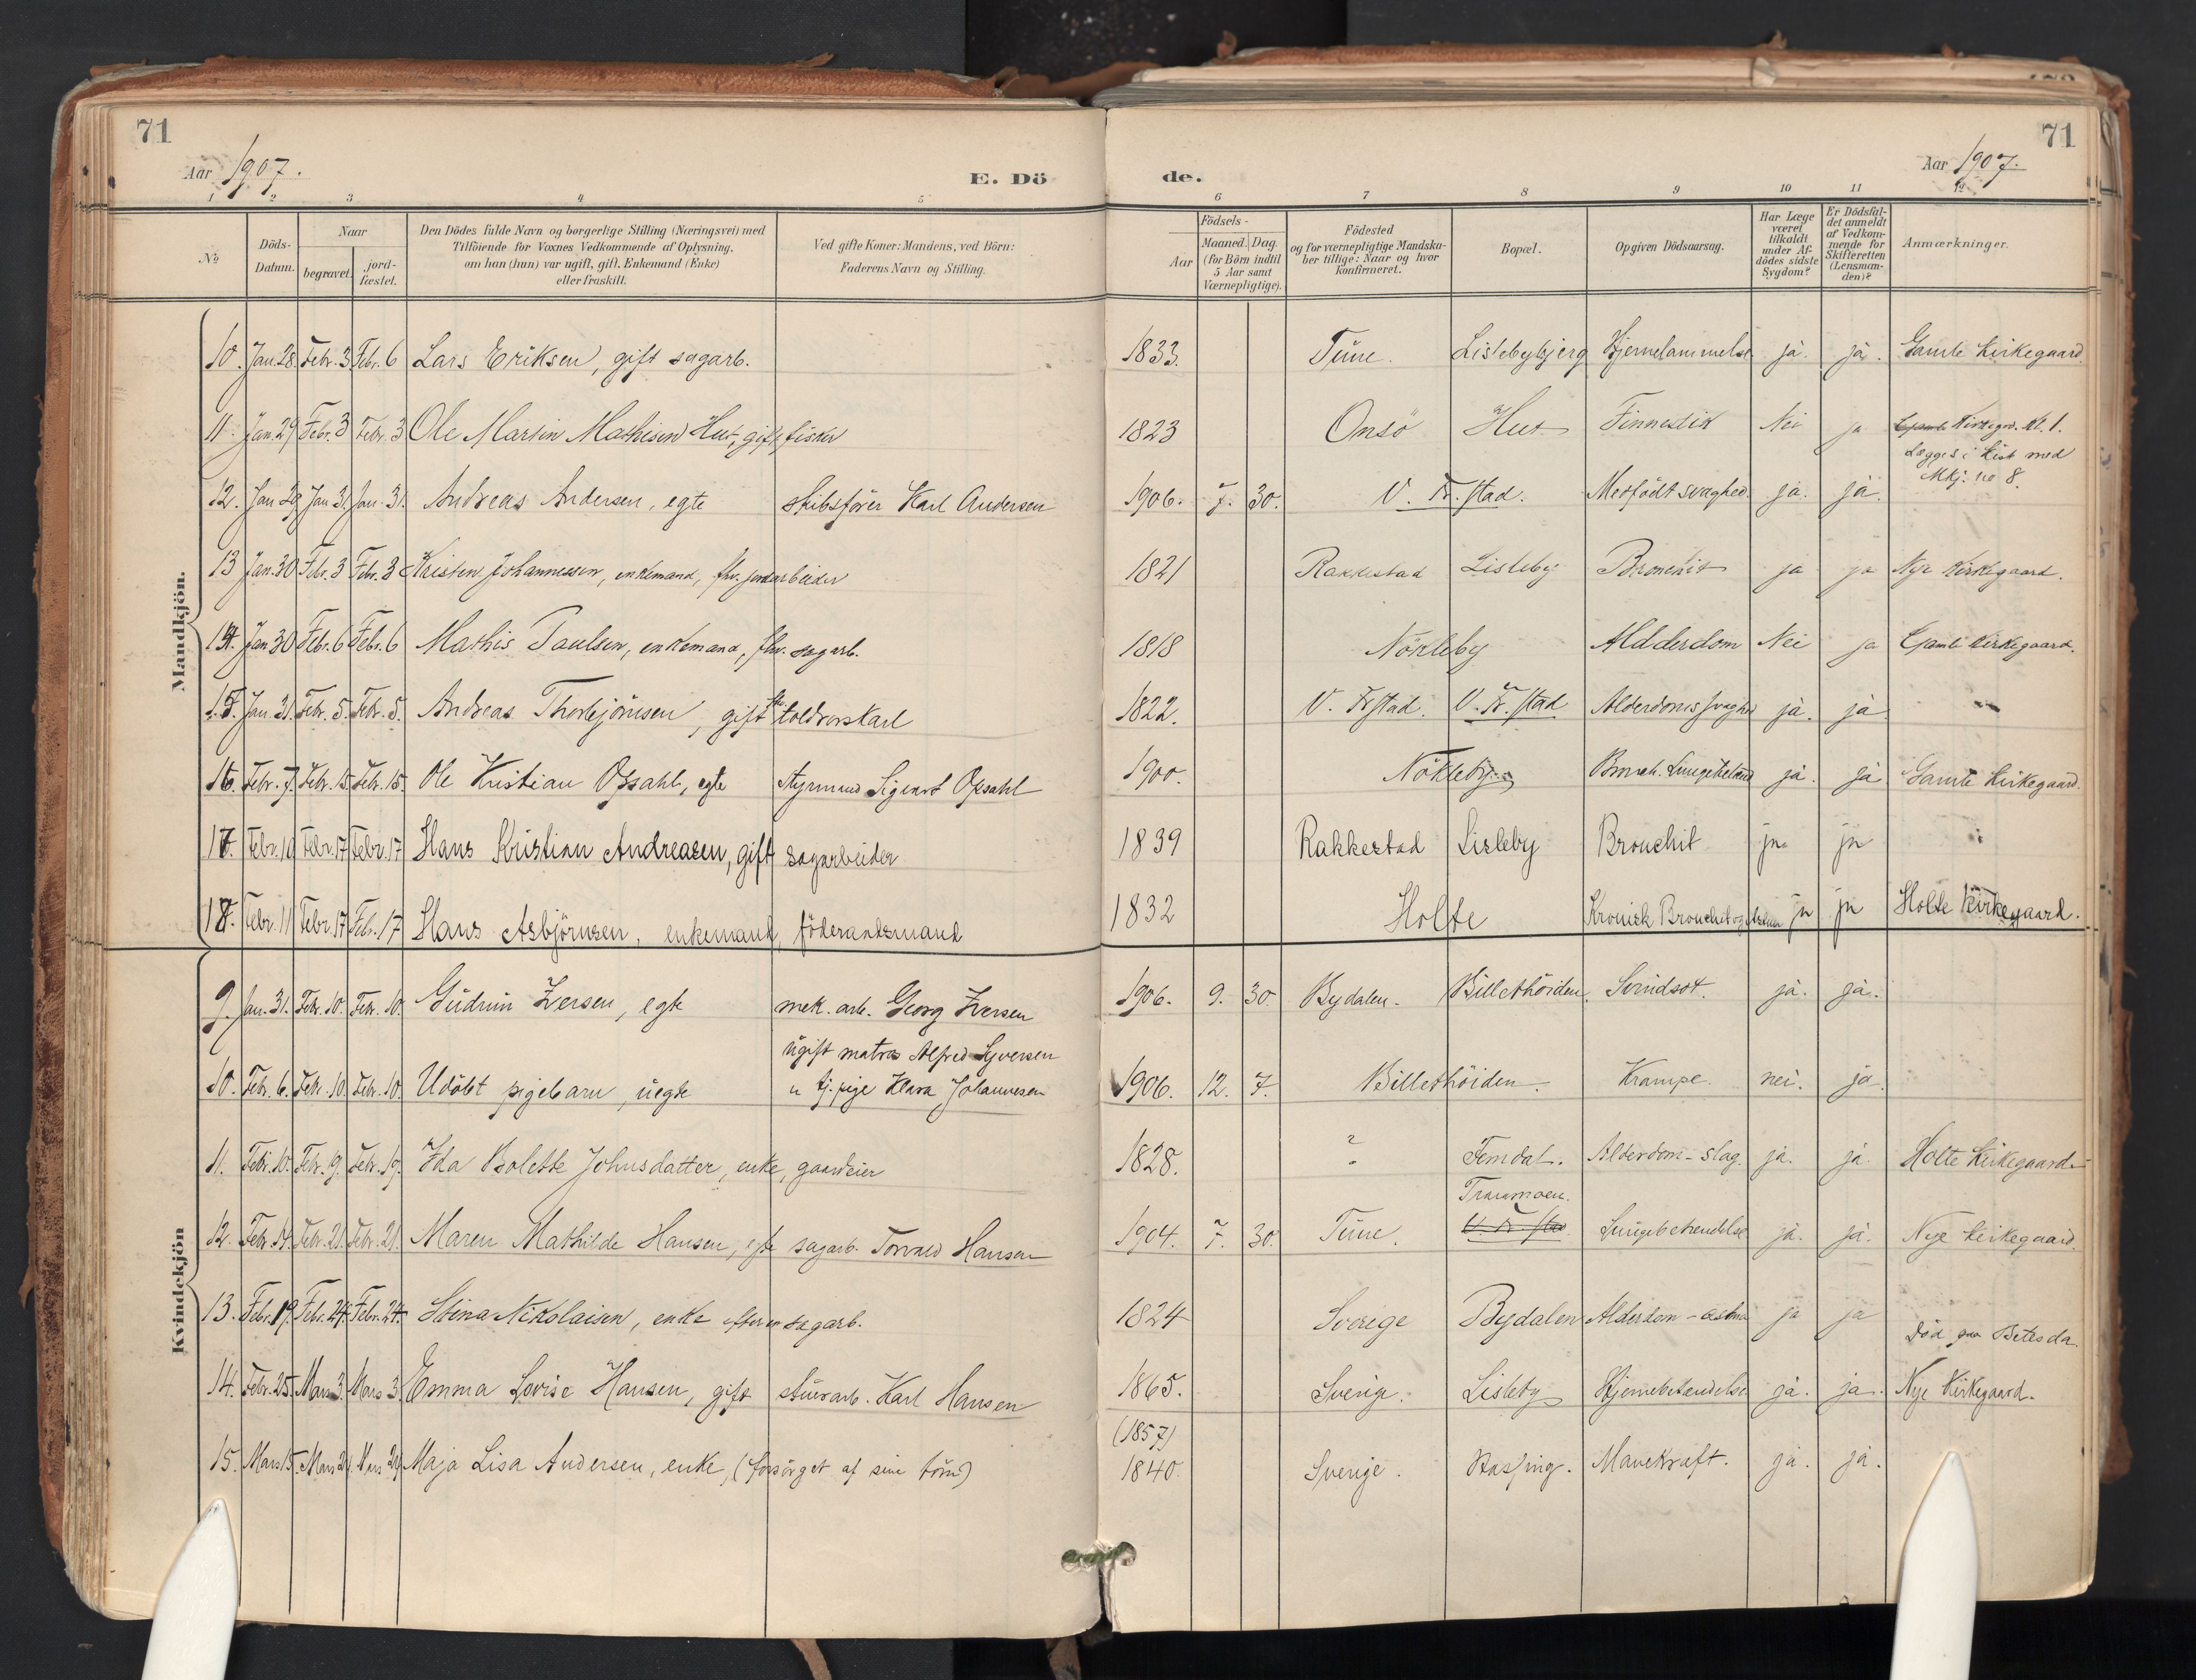 71
71
Aar 1907.
E. Dö
de.
Aar 1907.
1 2 3 4 5 6 7 8 9 10 11 12
№
Döds-Datum.
Naar
begravet.
jord-fæstet.
Den Dödes fulde Navn og borgerlige Stilling (Næringsvei) med
Tilföiende for Voxnes Vedkommende af Oplysning,
om han (hun) var ugift, gift, Enkemand (Enke)
eller fraskilt.
Ved gifte Koner: Mandens, ved Börn:
Faderens Navn og Stilling.
Födsels-
Aar
Maaned. Dag.
(for Börn indtil
5 Aar samt
Værnepligtige).
Födested
og for værnepligtige Mandska-
ber tillige: Naar og hvor
konfirmeret.
Bopæl.
Opgiven Dödsaarsag.
Har Læge
været
tilkaldt
under Af-
dödes sidste
Sygdom?
Er Dödsfal-
det anmeldt
af Vedkom-
mende for
Skifteretten
(Lensman-
den)?
Anmærkninger.
Mandkjön.
10. Jan. 28. Febr. 3 Febr. 6 Lars Eriksen, gift sagarb. 1833. Tune. Lislebybjerg Hjernelammelse ja. ja. Gamle Kirkegaard
11. Jan. 29 Febr. 3 Febr. 3 Ole Martin Mathisen Hut, gift, fisker 1823 Onsö Hut Nei ja Gamle Kirkegrd. Kl. 1.
Lægges i Kist med
12. Jan 29 Jan 31 Jan. 31. Andreas Andersen, egte skibsfører Karl Andersen 1906. 7. 30. V. Fr.stad. Medfödt svaghed. ja. ja. Mkj. no 8.
13 Jan. 30 Febr. 3 Febr. 3 Kristen Johannessen, enkemand, fhv. jordarbeider 1821 Rakkestad Lisleby Bronchit ja ja Nye Kirkegaard.
14. Jan 30 Feb. 6 Febr. 6 Mathis Paulsen, enkemand, fhv. sagarb. 1818 Nökleby Aldderdom Nei ja Gamle Kirkegaard.
15. Jan. 31. Febr. 5. Febr. 5. Andreas Thorbjörnsen, gift fhv. toldrorskarl 1822. V. Frstad. V. Fr.stad Alderdomssvaghed ja. ja. "
16. Febr. 7. Febr. 15. Febr. 15. Ole Kristian Opsahl, egte styrmand Sigvart Opsahl 1900. Nökleby. Bronch. Lungebetænd ja. ja Gamle Kirkegaard.
17. Febr. 10 Febr. 17 Febr. 17 Hans Kristian Andreasen, gift sagarbeider 1839 Rakkestad Lisleby Bronchit ja ja "
18. Febr. 11 Febr. 17 Feb. 17 Hans Asbjörnsen, enkemand, föderaadsmand 1832 Holte Kronisk Bronchit og Astma ja ja Holte Kirkegaard.
Kvindekjön
9. Jan. 31. Febr. 10. Febr. 10. Gudrun Iversen, egte mek. arb. Georg Iversen 1906. 9. 30. Bydalen. Billethöiden. Svindsot. ja. ja.
ugift matros Alfred Syversen
10. Febr. 6. Febr. 10. Febr. 10. Udöbt pigebarn, uegte u tj. pige Klara Johannesen 1906. 12. 7. Billethöiden. Krampe. nei. ja.
11. Febr. 10. Febr. 19. Febr. 19. Ida Bolette Johnsdatter, enke, gaardeier 1828. ? Femdal. Alderdom - slag. ja. ja. Holte Kirkegaard.
Traumoen.
12. Febr. 14. Febr. 21. Febr. 21. Maren Mathilde Hansen, egte sagarb. Torvald Hansen 1904. 7. 30. Tune. V. Fr.stad Lungebetændelse ja. ja. Nye Kirkegaard.
13. Febr. 19. Febr. 24. Febr. 24. Stina Nikolaisen, enke efter en sagarb. 1824 Sverige Bydalen Alderdom - astma ja ja Död paa Betesda
14. Febr. 25. Mars 3. Mars 3 Emma Lovise Hansen, gift stuerarb. Karl Hansen 1865. Sverige. Lisleby Hjernebetændelse ja. ja. Nye Kirkegaard.
(1857)
15. Mars 15. Mars 24. Mars 24. Maja Lisa Andersen, enke, (forsörget af sine börn) 1840. Sverige. Mavekræft. ja. ja.